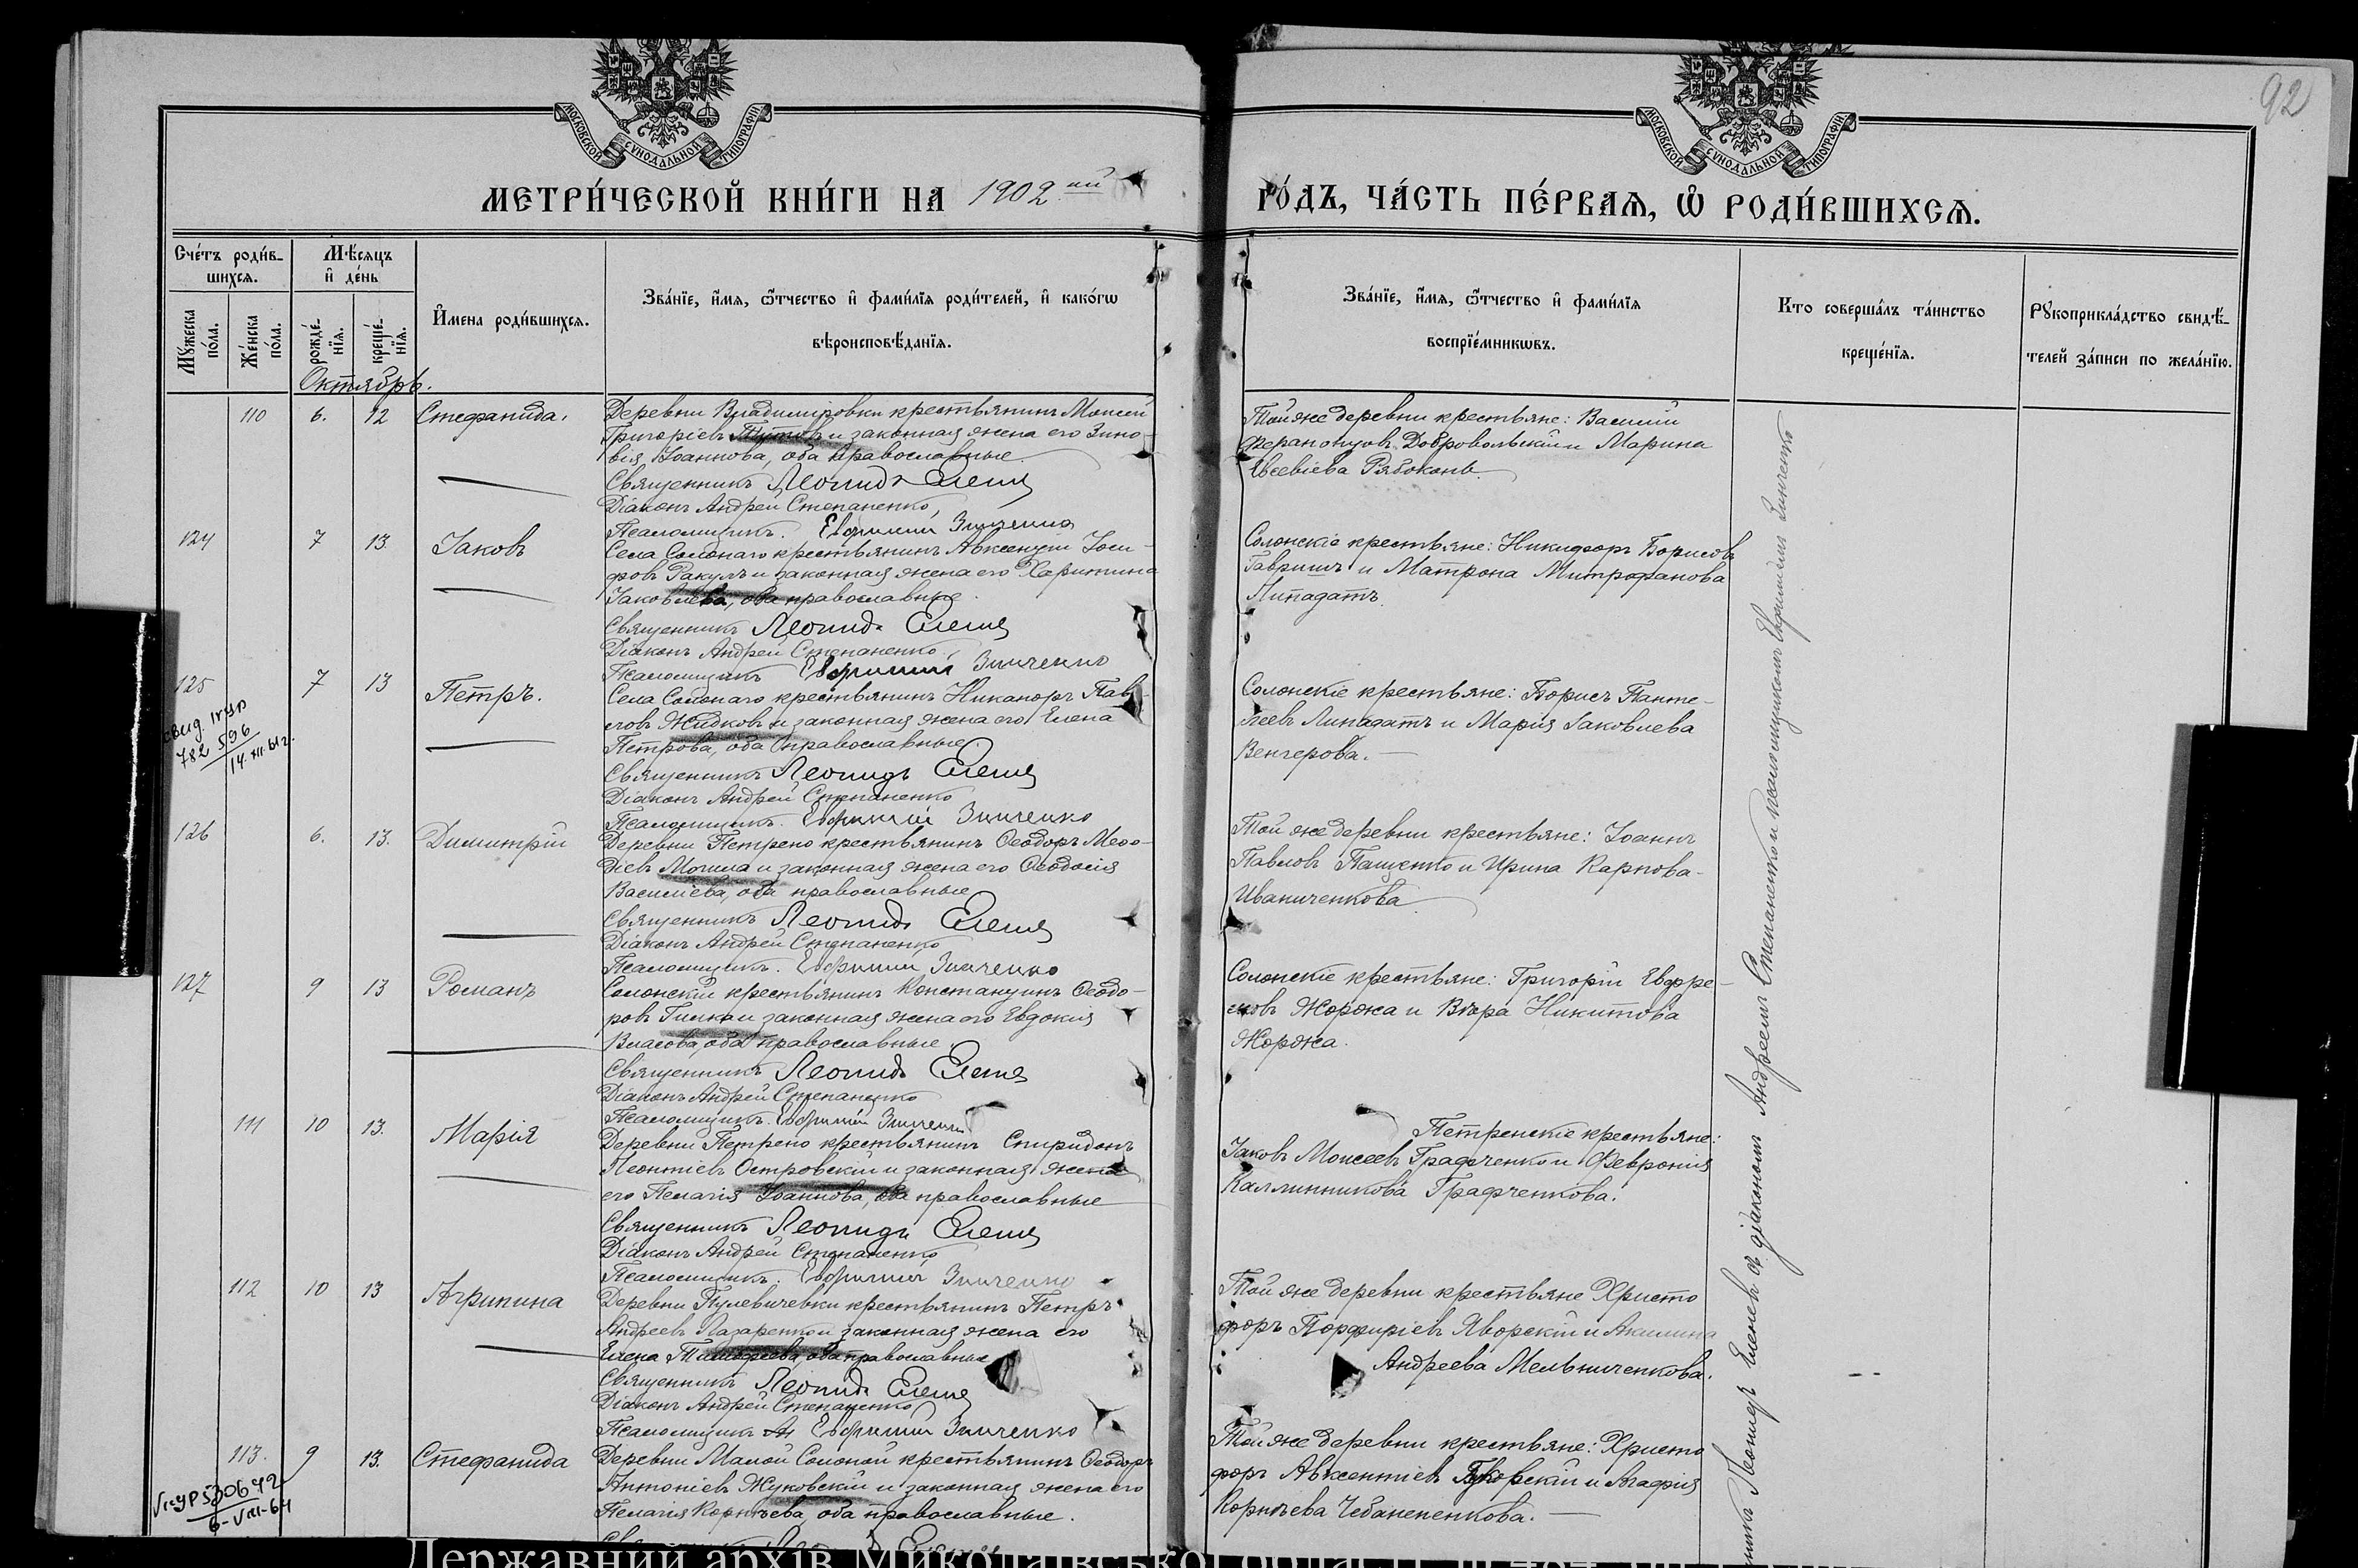 92
МОСКОВСКОЙ СУНОДАЛЬНОЙ ТИПОГРАФІИ
МОСКОВСКОЙ СУНОДАЛЬНОЙ ТИПОГРАФІИ
МЕТРИ́ЧЕСКОЙ КНИ́ГИ НА 1902ий
ГО́ДЪ, ЧА́СТЬ ПЕ́РВАѦ, Ѡ҆ РОДИ́ВШИХСѦ.
Сче́тъ роди́в-
шихсѧ.
Мꙋ́жеска по́ла.
Же́нска по́ла.
Мѣ́сѧцъ
и҆ де́нь
рожде́нїѧ.
креще́нїѧ.
И҆мена роди́вшихсѧ.
Зва́нїе, и҆́мѧ, ѻ҆́тчество и҆ фами́лїѧ роди́телей, и҆ како́гѡ
вѣроисповѣ́данїѧ.
Зва́нїе, и҆́мѧ, ѻ҆́тчество и҆ фами́лїѧ
воспрїе́мникѡвъ.
Кто соверша́лъ та́инство
креще́нїѧ.
Рꙋкоприкла́дство свидѣ́-
телей за́писи по жела́нїю.
Октябрь.
110 6. 12 Стефанида.
Деревни Владиміровки крестьянинъ Моисей
Григоріевъ Тутовъ и законная жена его Зино-
вія Іоаннова, оба православные.
Священникъ Леонидъ Еленев
Діаконъ Андрей Степаненко,
Псаломщикъ. Евфимій Зинченко
Той же деревни крестьяне: Василій
Ферапонтовъ Добровольскій и Марина
Евсевіева Рябоконь.
124 7 13 Іаковъ
Села Солонаго крестьянинъ Авксентій Іоси-
фовъ Ракулъ и законная жена его Харитина
Іаковлева, оба православные.
Священникъ Леонидъ Еленев
Діаконъ Андрей Степаненко.
Псаломщикъ Евфимій Зинченко
Солонскіе крестьяне: Никифоръ Борисовъ
Гавришъ и Матрона Митрофанова
Липадатъ.
125 7 13 Петръ.
свид. IГУР
782 596
14.XII.61г.
Села Солонаго крестьянинъ Никаноръ Пав-
ловъ Жидковъ и законная жена его Елена
Петрова, оба православные.
Священникъ Леонидъ Еленев
Діаконъ Андрей Степаненко
Псаломщикъ. Евфимій Зинченко
Солонскіе крестьяне: Борисъ Панте-
леевъ Липадатъ и Марія Іаковлева
Венгерова.
126 6. 13. Димитрій
Деревни Петрено крестьянинъ Ѳеодоръ Меѳо-
діевъ Могила и законная жена его Ѳеодосія
Василіева, оба православные
Священникъ Леонидъ Еленев
Діаконъ Андрей Степаненко
Псаломщикъ. Евфимій Зинченко
Той же деревни крестьяне: Іоаннъ
Павловъ Пащенко и Ирина Карпова-
Иваниченкова
127 9 13 Романъ
Солонскій крестьянинъ Константинъ Ѳеодо-
ровъ Гилка и законная жена его Евдокія
Власова, оба православные
Священникъ Леонидъ Еленев
Діаконъ Андрей Степаненко
Псаломщикъ. Евфимій Зинченко
Солонскіе крестьяне: Григорій Евфре-
мовъ Жоржа и Вѣра Никитова
Жоржа.
111 10 13. Марія
Деревни Петрено крестьянинъ Спиридонъ
Леонтіевъ Островскій и законная жена
его Пелагія Іоаннова, оба православные
Священникъ Леонидъ Еленев
Діаконъ Андрей Степаненко,
Псаломщикъ. Евфимій Зинченко
Петренскіе крестьяне:
Іаковъ Моисеевъ Градченко и Февронія
Каллинникова Графченкова.
112 10 13 Агрипина
Деревни Пулевичевки крестьянинъ Петръ
Андреевъ Лазаренко и законная жена его
Елена Тимофеева, оба православные
Священникъ Леонидъ Еленев
Діаконъ Андрей Степаненко
Псаломщикъ Евфимій Зинченко
Той же деревни крестьяне Христо
форъ Порфиріевъ Яворскій и Акилина
Андреева Мельниченкова.
113. 9 13. Стефанида
530642
6-VIII-64
Деревни Малой Солоной крестьянинъ Ѳеодоръ
Антоніевъ Жуковскій и законная жена его
Пелагія Корнѣева, оба православные.
Той же деревни крестьяне: Христо
форъ Авксентіевъ и Агафія
Корнѣева Чебаненкова.
Леонидъ Еленевъ съ діакономъ Андреемъ Степаненко и псаломщикомъ Евфиміемъ Зинченко
Державний архів Миколаївської області